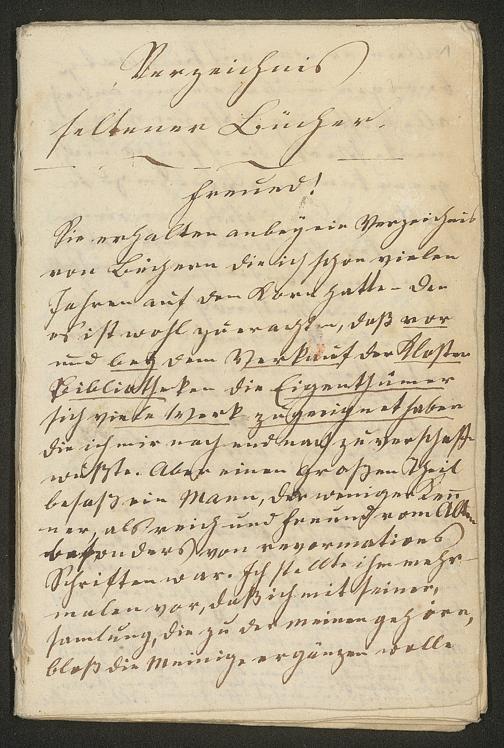 Verzeichnis
seltener Bücher.
Freund!
Sie erhalten anbey ein Verzeichnis
von Büchern die ich schon vielen
Jahren auf dem Korn hatte – Den
es ist wohl zu erachten, daß vor
und bey dem Verkauf der Kloster
Bibliotheken die Eigenthümer
sich viele Werk zugeeignet haben
die ich mir nach und nach zu verschaffen
wußte. Aber einen großen Theil
besaß ein Mann, der weniger Ken
ner, als reich und Freund vom Alten
besonders von revormations
Schriften war. Ich stellte ihm mehr-
malen vor, daß ich mit seiner
samlung, die zu der meinen gehören,
bloß die Meinige ergänzen wolle